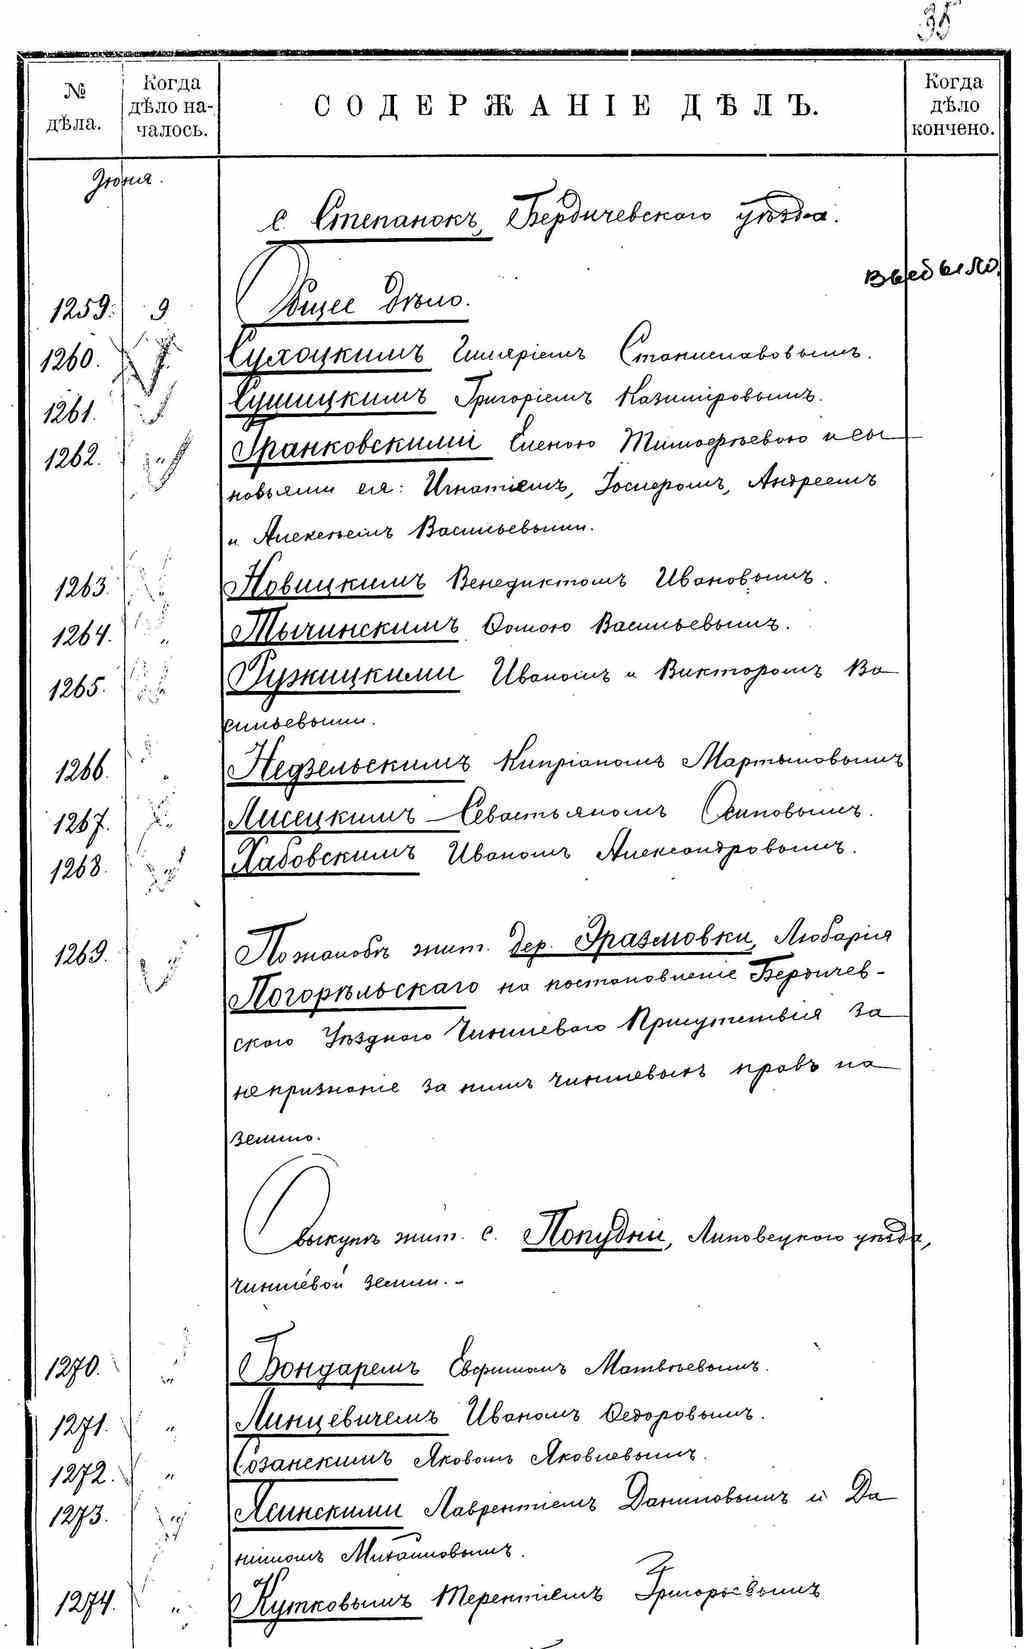 35
№ дѣла. Когда дѣло началось. СОДЕРЖАНІЕ ДѢЛЪ. Когда дѣло кончено.
Іюня.
с. Степанокъ, Бердичевскаго уѣзда.
выбыло.
1259. 9 Общее дѣло.
1260. Сухоцкимъ Гиляріемъ Станиславовымъ.
1261. " Сушицкимъ Григоріемъ Казиміровымъ.
1262. " Гранковскими Еленою Тимофѣевою и сы
новьями ея: Игнатіемъ, Іосифомъ, Андреемъ
и Алексѣемъ Васильевыми.
1263. " Новицкимъ Венедиктомъ Ивановымъ.
1264. " Тычинскимъ Ѳомою Васильевымъ.
1265. " Ружицкими Иваномъ и Викторомъ Ва
сильевыми.
1266. " Недзельскимъ Кипріаномъ Мартыновымъ
1267. " Лисецкимъ Севастьяномъ Осиповымъ.
1268. " Хабовскимъ Иваномъ Александровымъ.
1269. " По жалобѣ жит. дер. Эразмовки, Любарія
Погорѣльскаго на постановленіе Бердичев-
скаго Уѣзднаго Чиншеваго Присутствія за
непризнаніе за нимъ чиншевыхъ правъ на
землю.
О выкупѣ жит. с. Попудни, Липовецкаго уѣзда,
чиншевой земли.-
1270. " Бондаремъ Евфимомъ Матвѣевымъ.
1271. " Линцевичемъ Иваномъ Ѳедоровымъ.
1272. " Созанскимъ Яковомъ Яковлевымъ.
1273. " Ясинскими Лаврентіемъ Даниловымъ и Да
ниломъ Михайловымъ.
1274. " Кутковымъ Терентіемъ Григорьевымъ